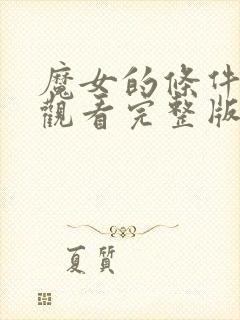 魔女的條件
觀看完整版
夏質